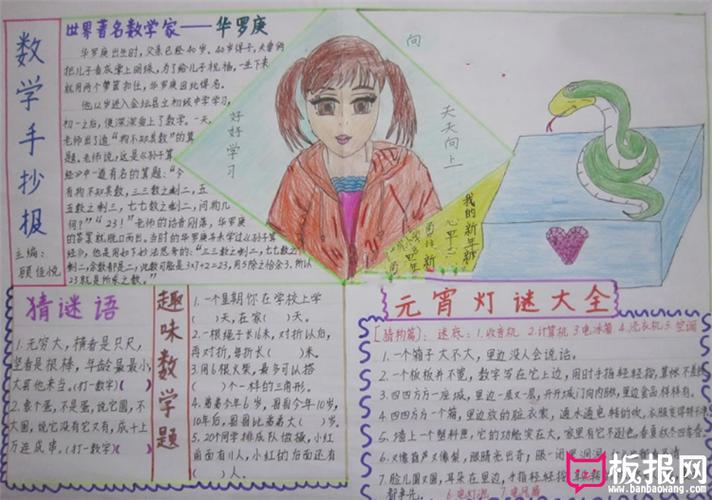 数学手抄报
主编:
顾佳悦
世界著名数学家——华罗庚
华罗庚出生时,父亲已经40岁。40岁得子,夫妻俩
把儿子看成掌上明珠,为了给儿子祝福,
就用两个箩筐扣住,华罗庚因此得名。
他12岁进入金坛县立初级中学学习,
初一之后,便深深爱上了数学。一天,
老师出了道“物不知其数”的算
题。老师说,这是《孙子算
经》中一道有名的算题:“今
有物不知其数,三三数之剩二,五
五数之剩三,七七数之剩二,问物几
何?”“23!”老师的话音刚落,华罗庚
的答案就脱口而出。当时的华罗庚并未学过《孙子算
经》,他是用如下妙法思考的:“三三数之剩二,七七数之
剩二,余数都是二,此数可能是3×7+2=23,用5除之恰余3,所以
23就是所求之数。”
好好学习
天天向上
向
我的新年新
猜谜语
1.无穷大,横看是只尺,
竖看是根棒,年龄最最小,
大哥他来当。(打一数字)( )
2.象个蛋,不是蛋,说它圆,不
大圆,说它没有它又有,成十上
万连成串。(打一数字)( )
趣味数学题
1.一个星期你在学校上学
( )天,在家( )天。
2.一根绳子长16米,对折以后,
再对折,每折长( )米。
3.用6根火柴,最多可以搭
( )个一样的三角形。
4.着着今年6岁,哥哥今年10岁,
10年后,哥哥比着着大( )岁。
5.20个同学排成队做操,小红
前面有11人,小红的后面还有
( )人。
元宵灯谜大全
谜底:1.收音机 2.计算机 3.电冰箱 4.洗衣机 5.空调
1.一个箱子大不大,里边没人会说话。
2.一个板板并不宽,数字写在它上边,用时手指轻轻按,
3.四四方方一座城,里边一层又一层,
4.四四方方一个箱,里边放的脏衣裳,
5.墙上一个塑料匣,它的功能实在大,
6.
7.脸儿圆
板报网
www.banbaowang.com